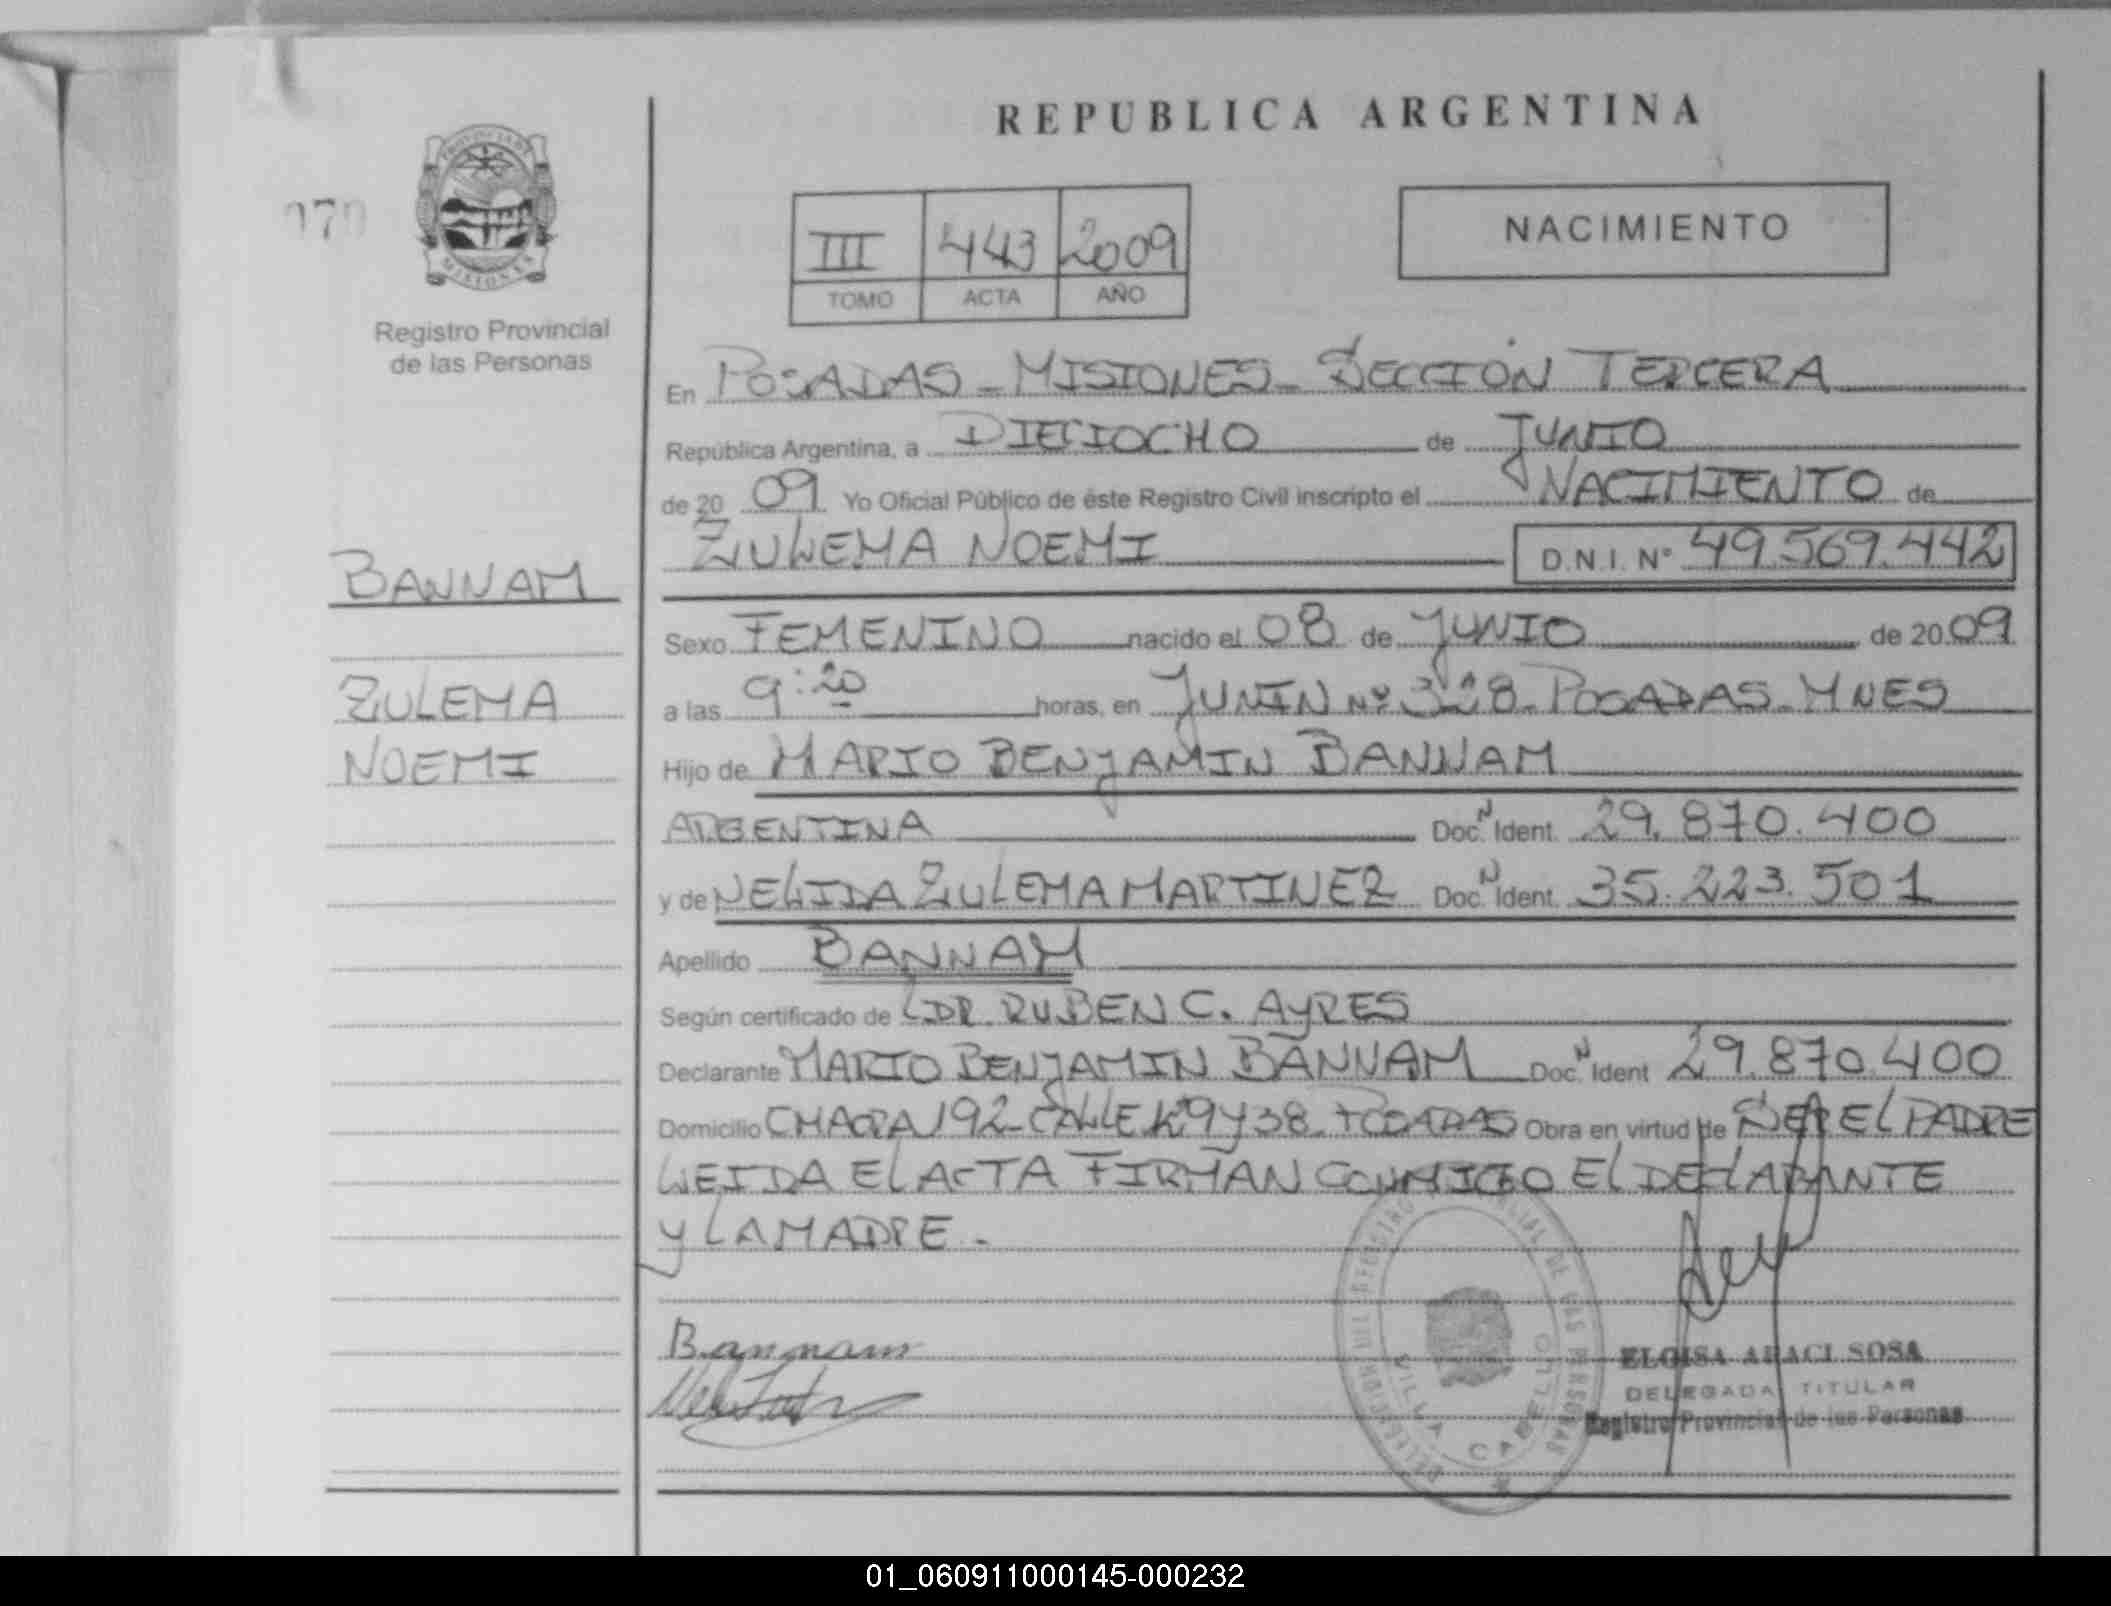 REPUBLICA ARGENTINA
PROVINCIA DE
MISIONES
Registro Provincial
de las Personas
III 443 2009
TOMO ACTA AÑO
NACIMIENTO
En POSADAS - MISIONES - SECCIÓN TERCERA
República Argentina, a DIECIOCHO de JUNIO
de 20 09 Yo Oficial Público de éste Registro Civil inscripto el NACIMIENTO de
ZULEMA NOEMI D.N.I. Nº 49.569.442
BANNAM
ZULEMA
NOEMI
Sexo FEMENINO nacido el 08 de JUNIO de 20 09
a las 9:20 horas, en JUNIN Nº 328 - POSADAS - MNES
Hijo de MARIO BENJAMIN BANNAM
ARGENTINA Doc. N Ident. 29.870.400
y de NELIDA ZULEMA MARTINEZ Doc. N Ident. 35.223.501
Apellido BANNAM
Según certificado de DR. RUBEN C. AYRES
Declarante MARIO BENJAMIN BANNAM Doc. N Ident 29.870.400
Domicilio CHACRA 192 - CALLE 129 y 38 - POSADAS Obra en virtud de SER EL PADRE
LEIDA EL ACTA FIRMAN CONMIGO EL DECLARANTE
y LA MADRE.
Bannam
DELEGACION DEL REGISTRO PROVINCIAL DE LAS PERSONAS
VILLA CABELLO
ELOISA ARACI SOSA
DELEGADA TITULAR
Registro Provincial de las Personas
01_060911000145-000232